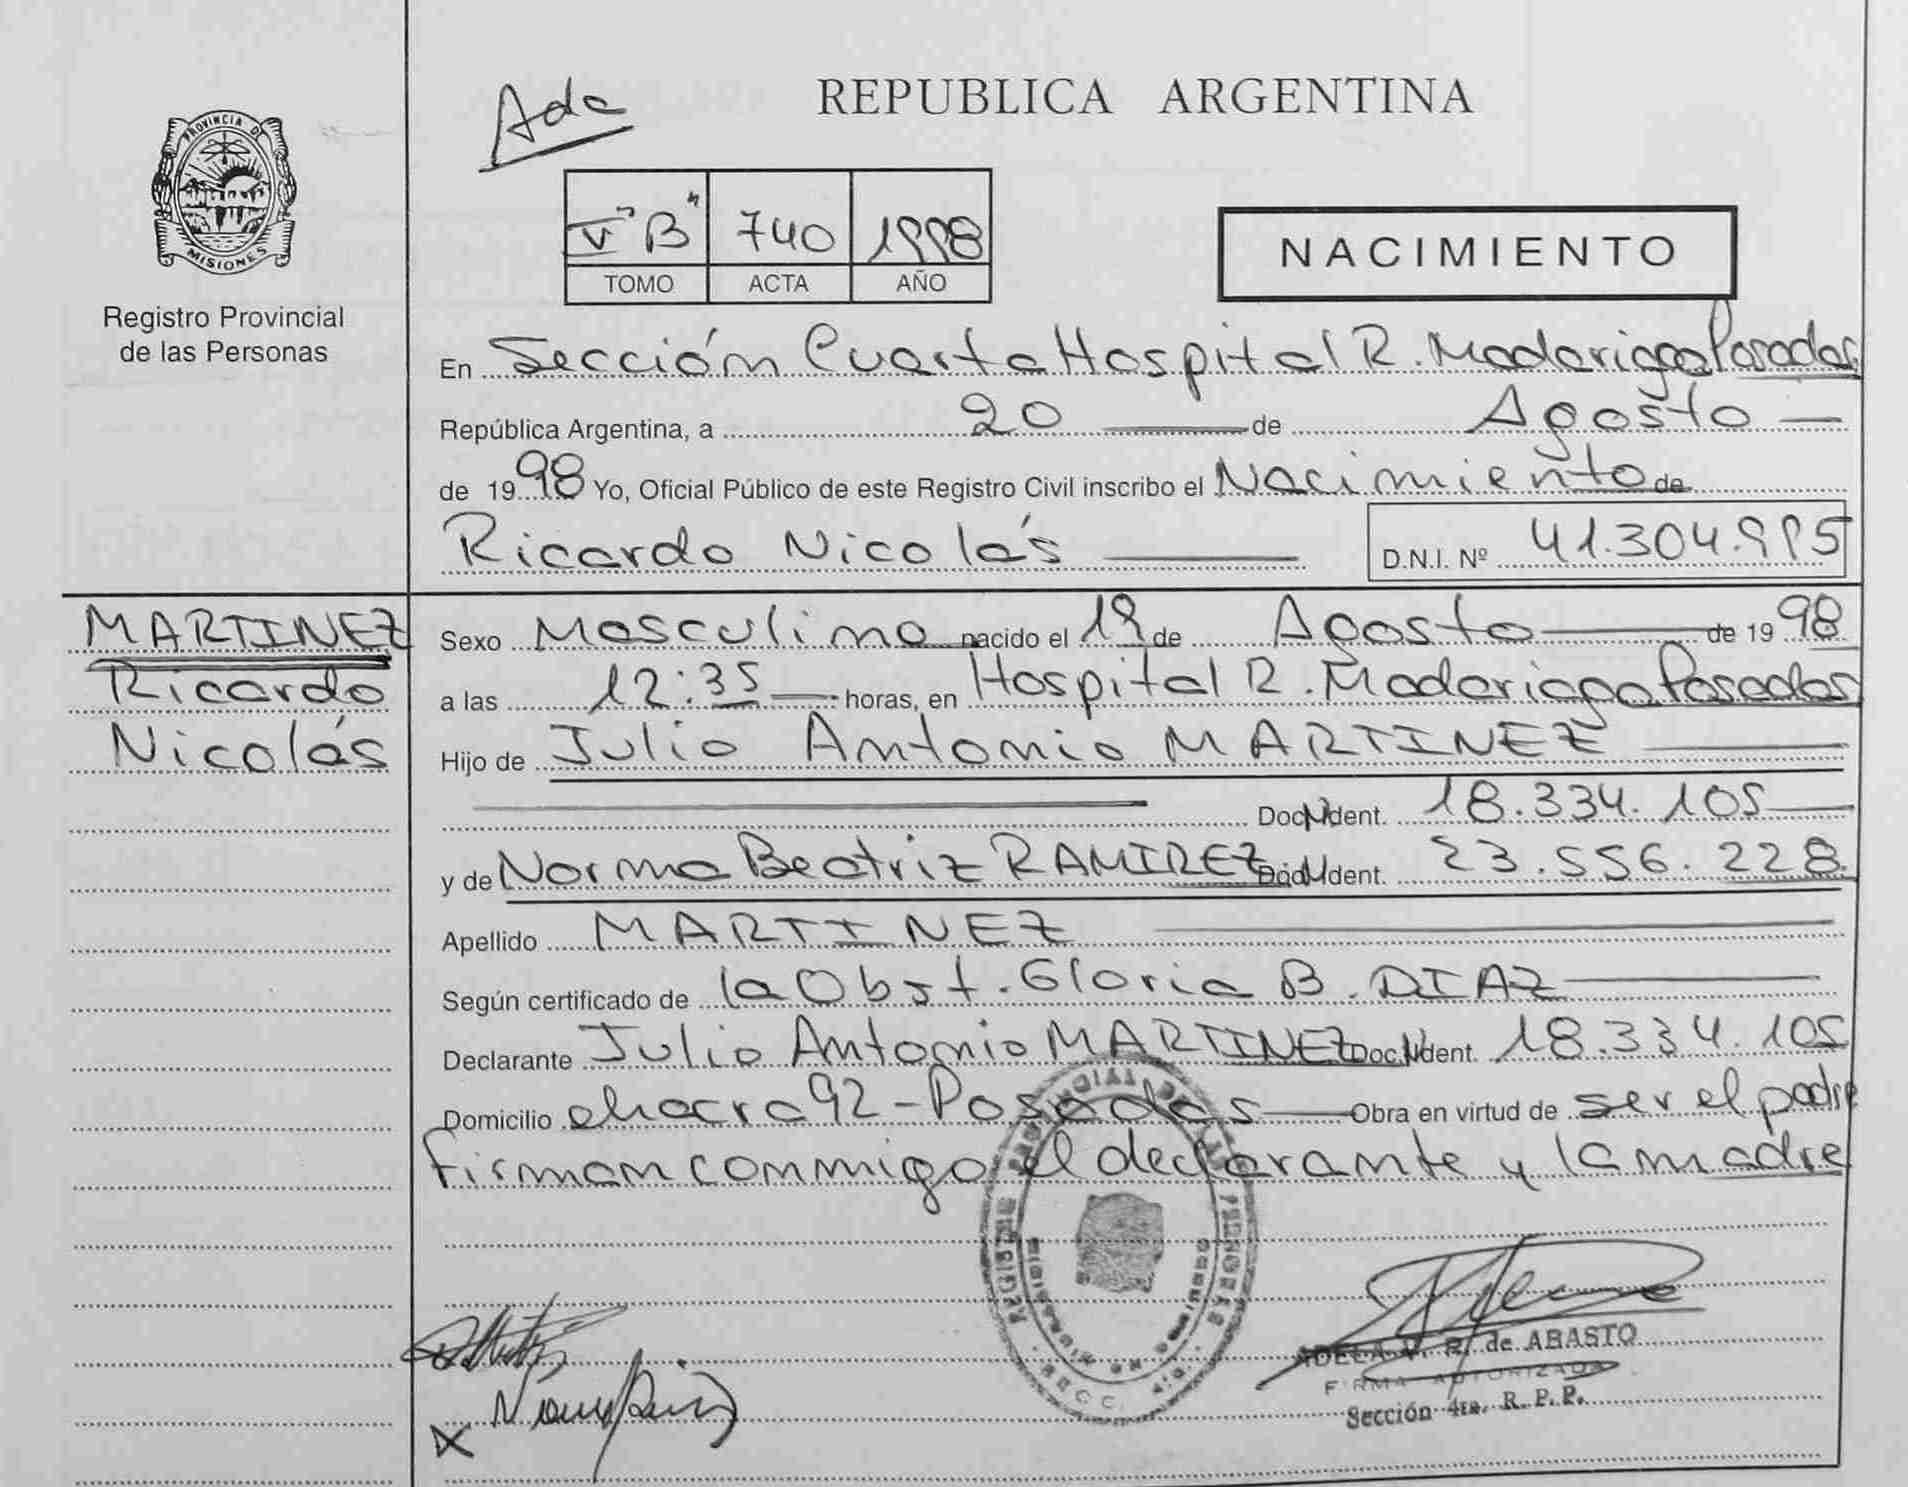 Ada
REPUBLICA ARGENTINA
PROVINCIA DE
MISIONES
Registro Provincial
de las Personas
V "B" 740 1998
TOMO ACTA AÑO
NACIMIENTO
En Sección Cuarta Hospital R. Madariaga Posadas
República Argentina, a 20 de Agosto
de 1998 Yo, Oficial Público de este Registro Civil inscribo el Nacimiento de
Ricardo Nicolás D.N.I. Nº 41.304.995
MARTINEZ
Ricardo
Nicolás
Sexo Masculino nacido el 19 de Agosto de 1998
a las 12:35 horas, en Hospital R. Madariaga Posadas
Hijo de Julio Antonio MARTINEZ
Doc. Ident. 18.334.105
y de Norma Beatriz RAMIREZ Doc. Ident. 23.556.228
Apellido MARTINEZ
Según certificado de la Obst. Gloria B. DIAZ
Declarante Julio Antonio MARTINEZ Doc. Ident. 18.334.105
Domicilio chacra 92 - Posadas Obra en virtud de ser el padre
firman conmigo el declarante y la madre
REGISTRO PROVINCIAL DE LAS PERSONAS
ADELA V. R. de ABASTO
FIRMA AUTORIZADA
Sección 4ta. R. P. P.